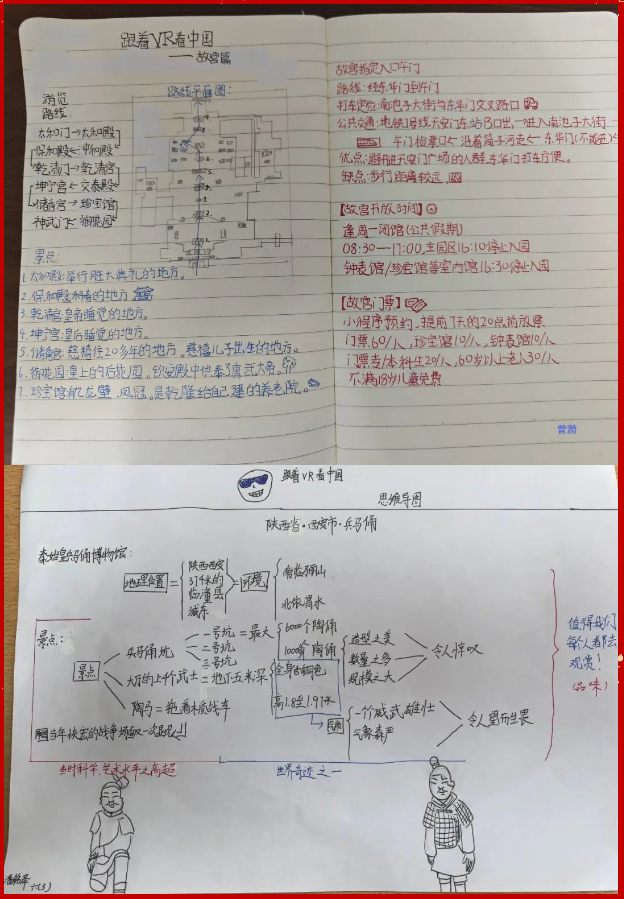 跟着VR看中国
——故宫篇
路线平面图:
游览
路线:
太和门→太和殿
保和殿←中和殿
乾清门→乾清宫
坤宁宫←交泰殿
储秀宫→珍宝馆
神武门←御花园
景点:
1.太和殿:举行盛大典礼的地方。
2.保和殿
3.乾清宫:皇帝睡觉的地方。
4.坤宁宫:皇后睡觉的地方。
5.储秀宫:慈禧住20多年的地方,慈禧儿子出生的地方。
6.御花园:皇上的后花园,钦安殿中供奉了真武大帝。
7.珍宝馆:九龙壁,凤冠,是乾隆给自己建的养老院。
故宫指定入口午门
路线:经东华门到午门
打车定位:南池子大街与东华门交叉路口
公共交通:地铁1号线天安门东站B口出→进入南池子大街→
午门检票口←沿着筒子河走←东华门(不能进)
优点:避开进天安门广场的人群,东华门打车方便。
缺点:步行距离较远。
【故宫开放时间】
逢周一闭馆(公共假期)
08:30—17:00,主园区16:10停止入园
钟表馆/珍宝馆等室内馆16:30停止入园
【故宫门票】
小程序预约,提前7天的20点前放票
门票60/人,珍宝馆10/人,钟表馆10/人
门票专/本科生20/人,60岁以上老人30/人
不满18岁儿童免费
曾潞
跟着VR看中国
思维导图
陕西省·西安市·兵马俑
秦始皇兵马俑博物馆:
地理位置=
陕西西安
37千米的
临潼县
城东
=环境
南临骊山
北依渭水
景点:
景点
兵马俑坑
一号坑=最大
二号坑
三号坑
6000个陶俑
大方的上4个武士=地下五米深
全身古铜色
高1.8至1.97米
陶马=拖着木质战车
造型之美
数量之多
规模之大
令人惊叹
一个威武雄壮
气象森严
令人望而生畏
值得我们
每个人都去
观赏!
(品味)
当时科学,艺术水平之高超
世界奇迹之一
六(3)